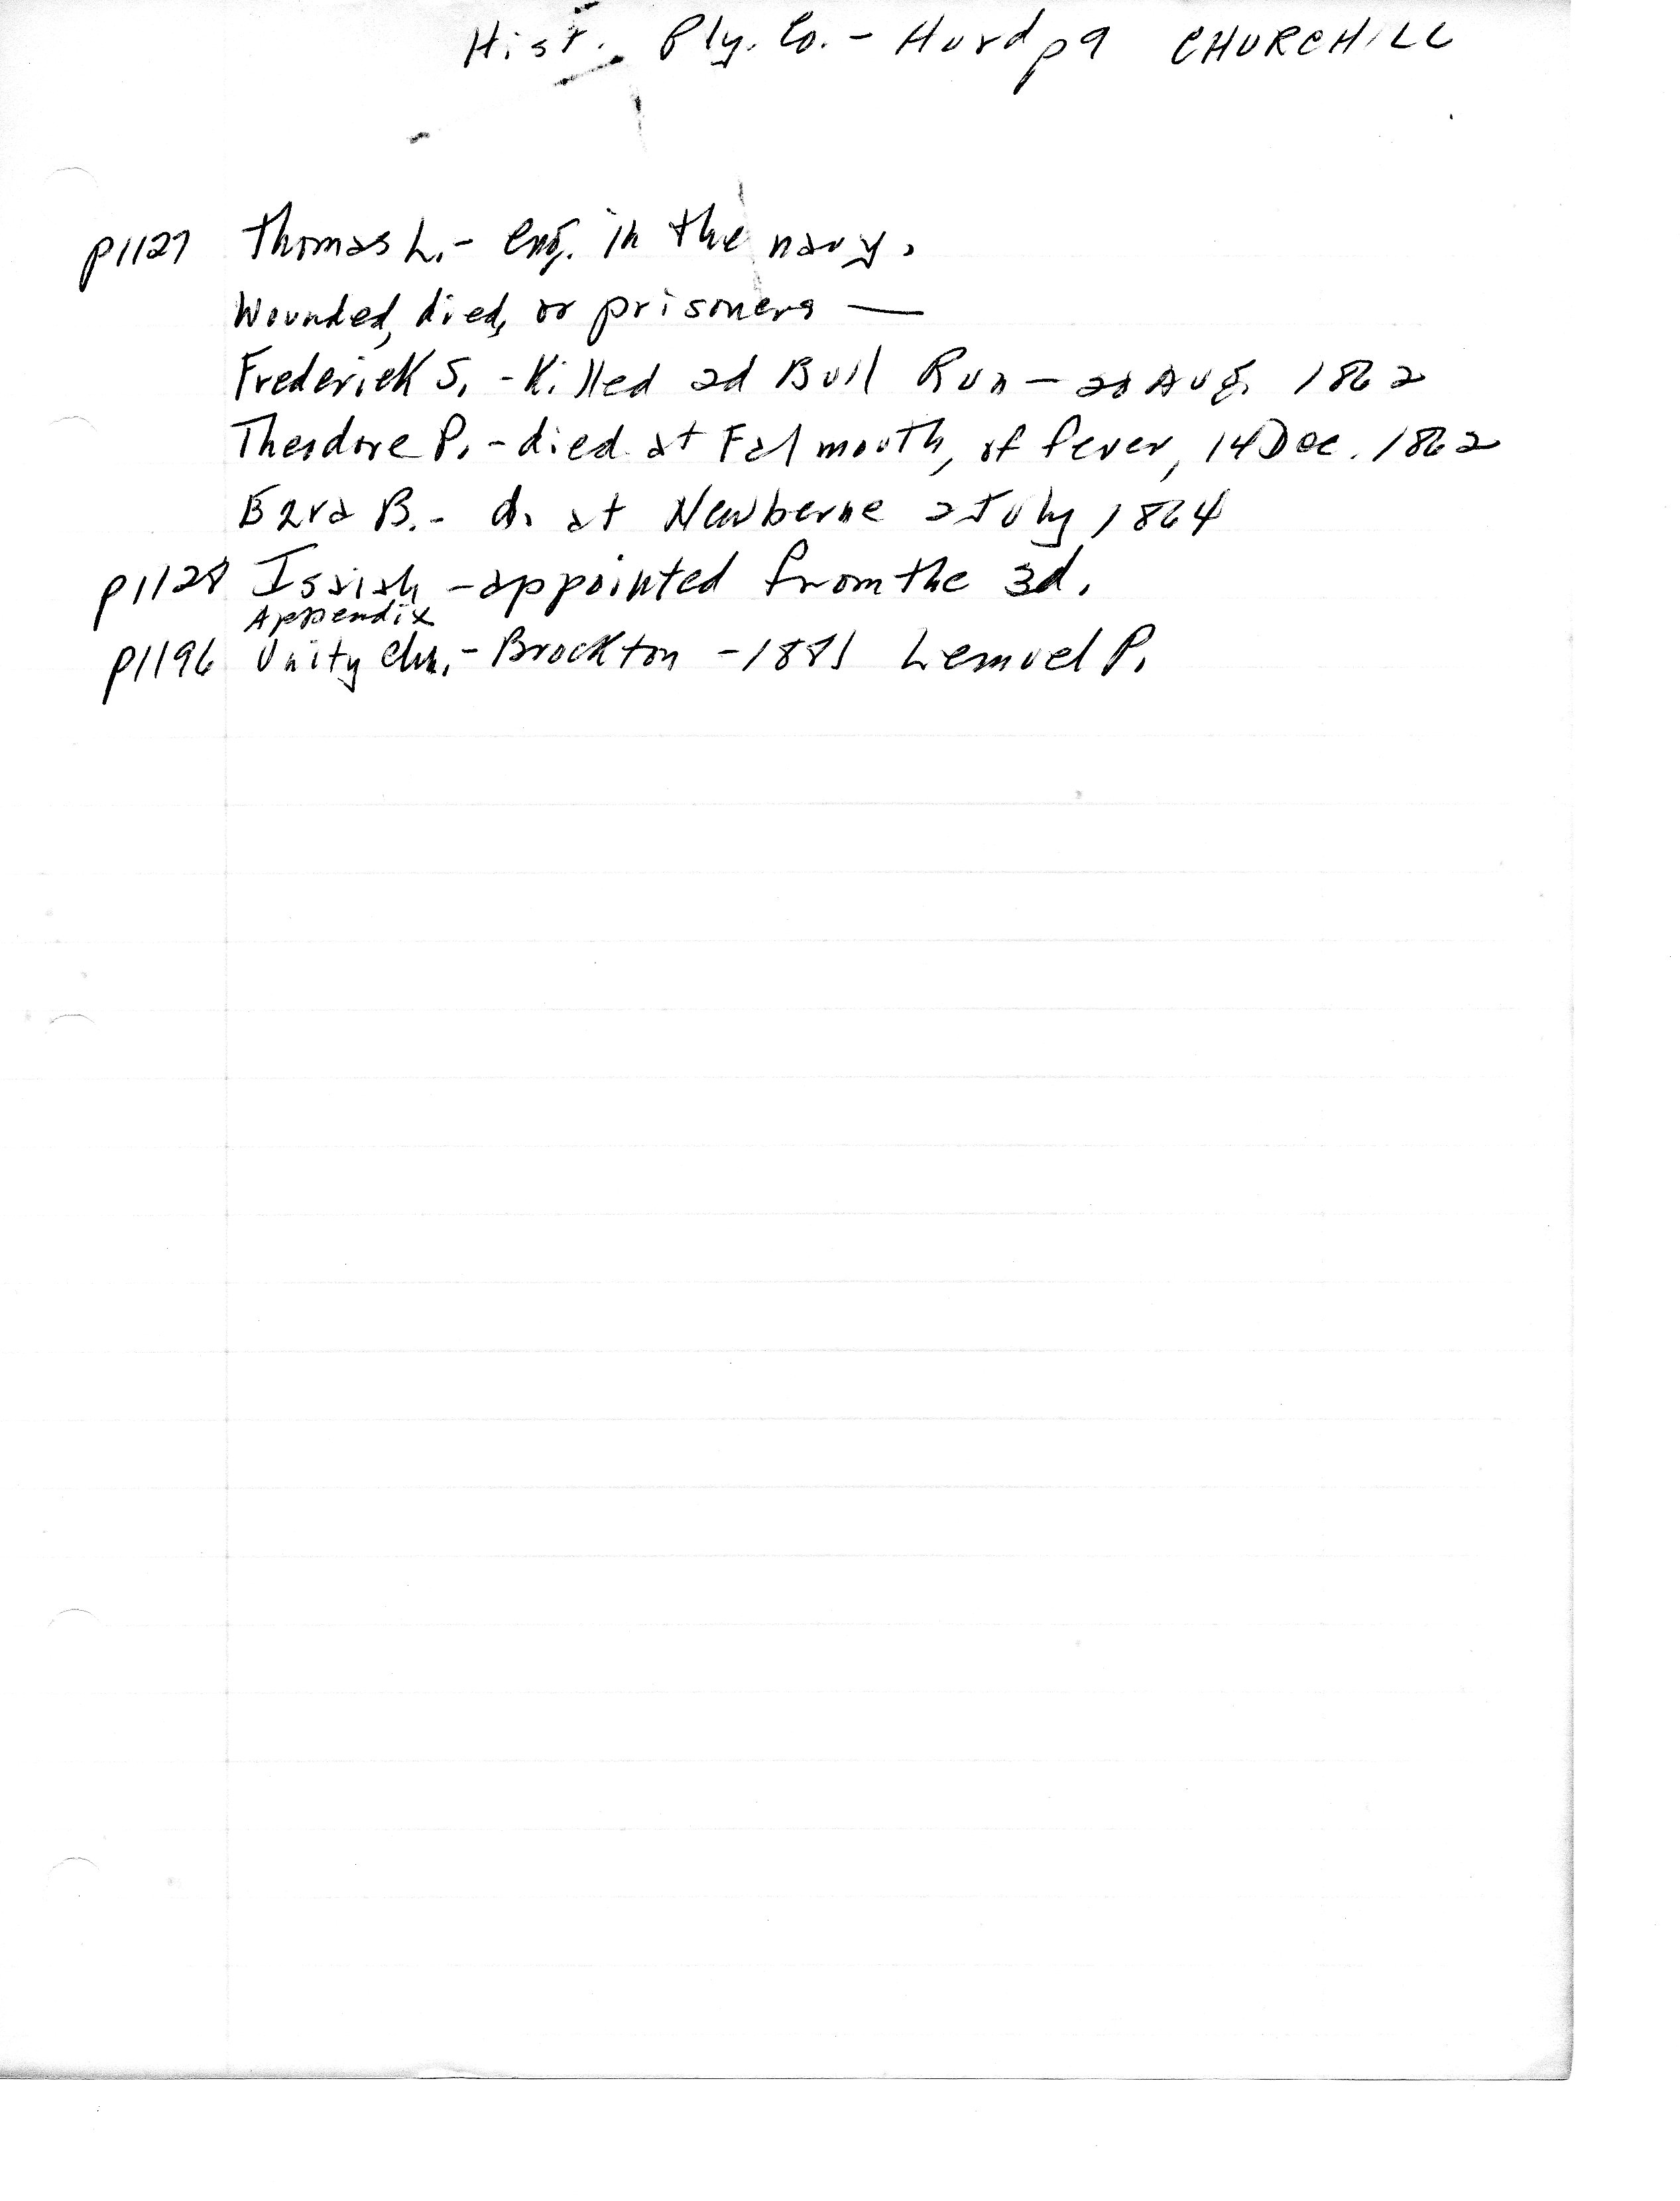 Hist. Ply. Co. - Hurd p9 CHURCHILL
p1127 Thomas L. - eng. in the navy.
Wounded, died, or prisoners —
Frederick S. - Killed 2d Bull Run - Aug. 1862
Theodore P. - died at Falmouth, of fever, 14 Dec. 1862
Ezra B. - d. at Newberne 2 July 1864
p1128 Isaiah - appointed from the 3d.
Appendix
p1196 Unity Chh. - Brockton - 1881 Lemuel P.